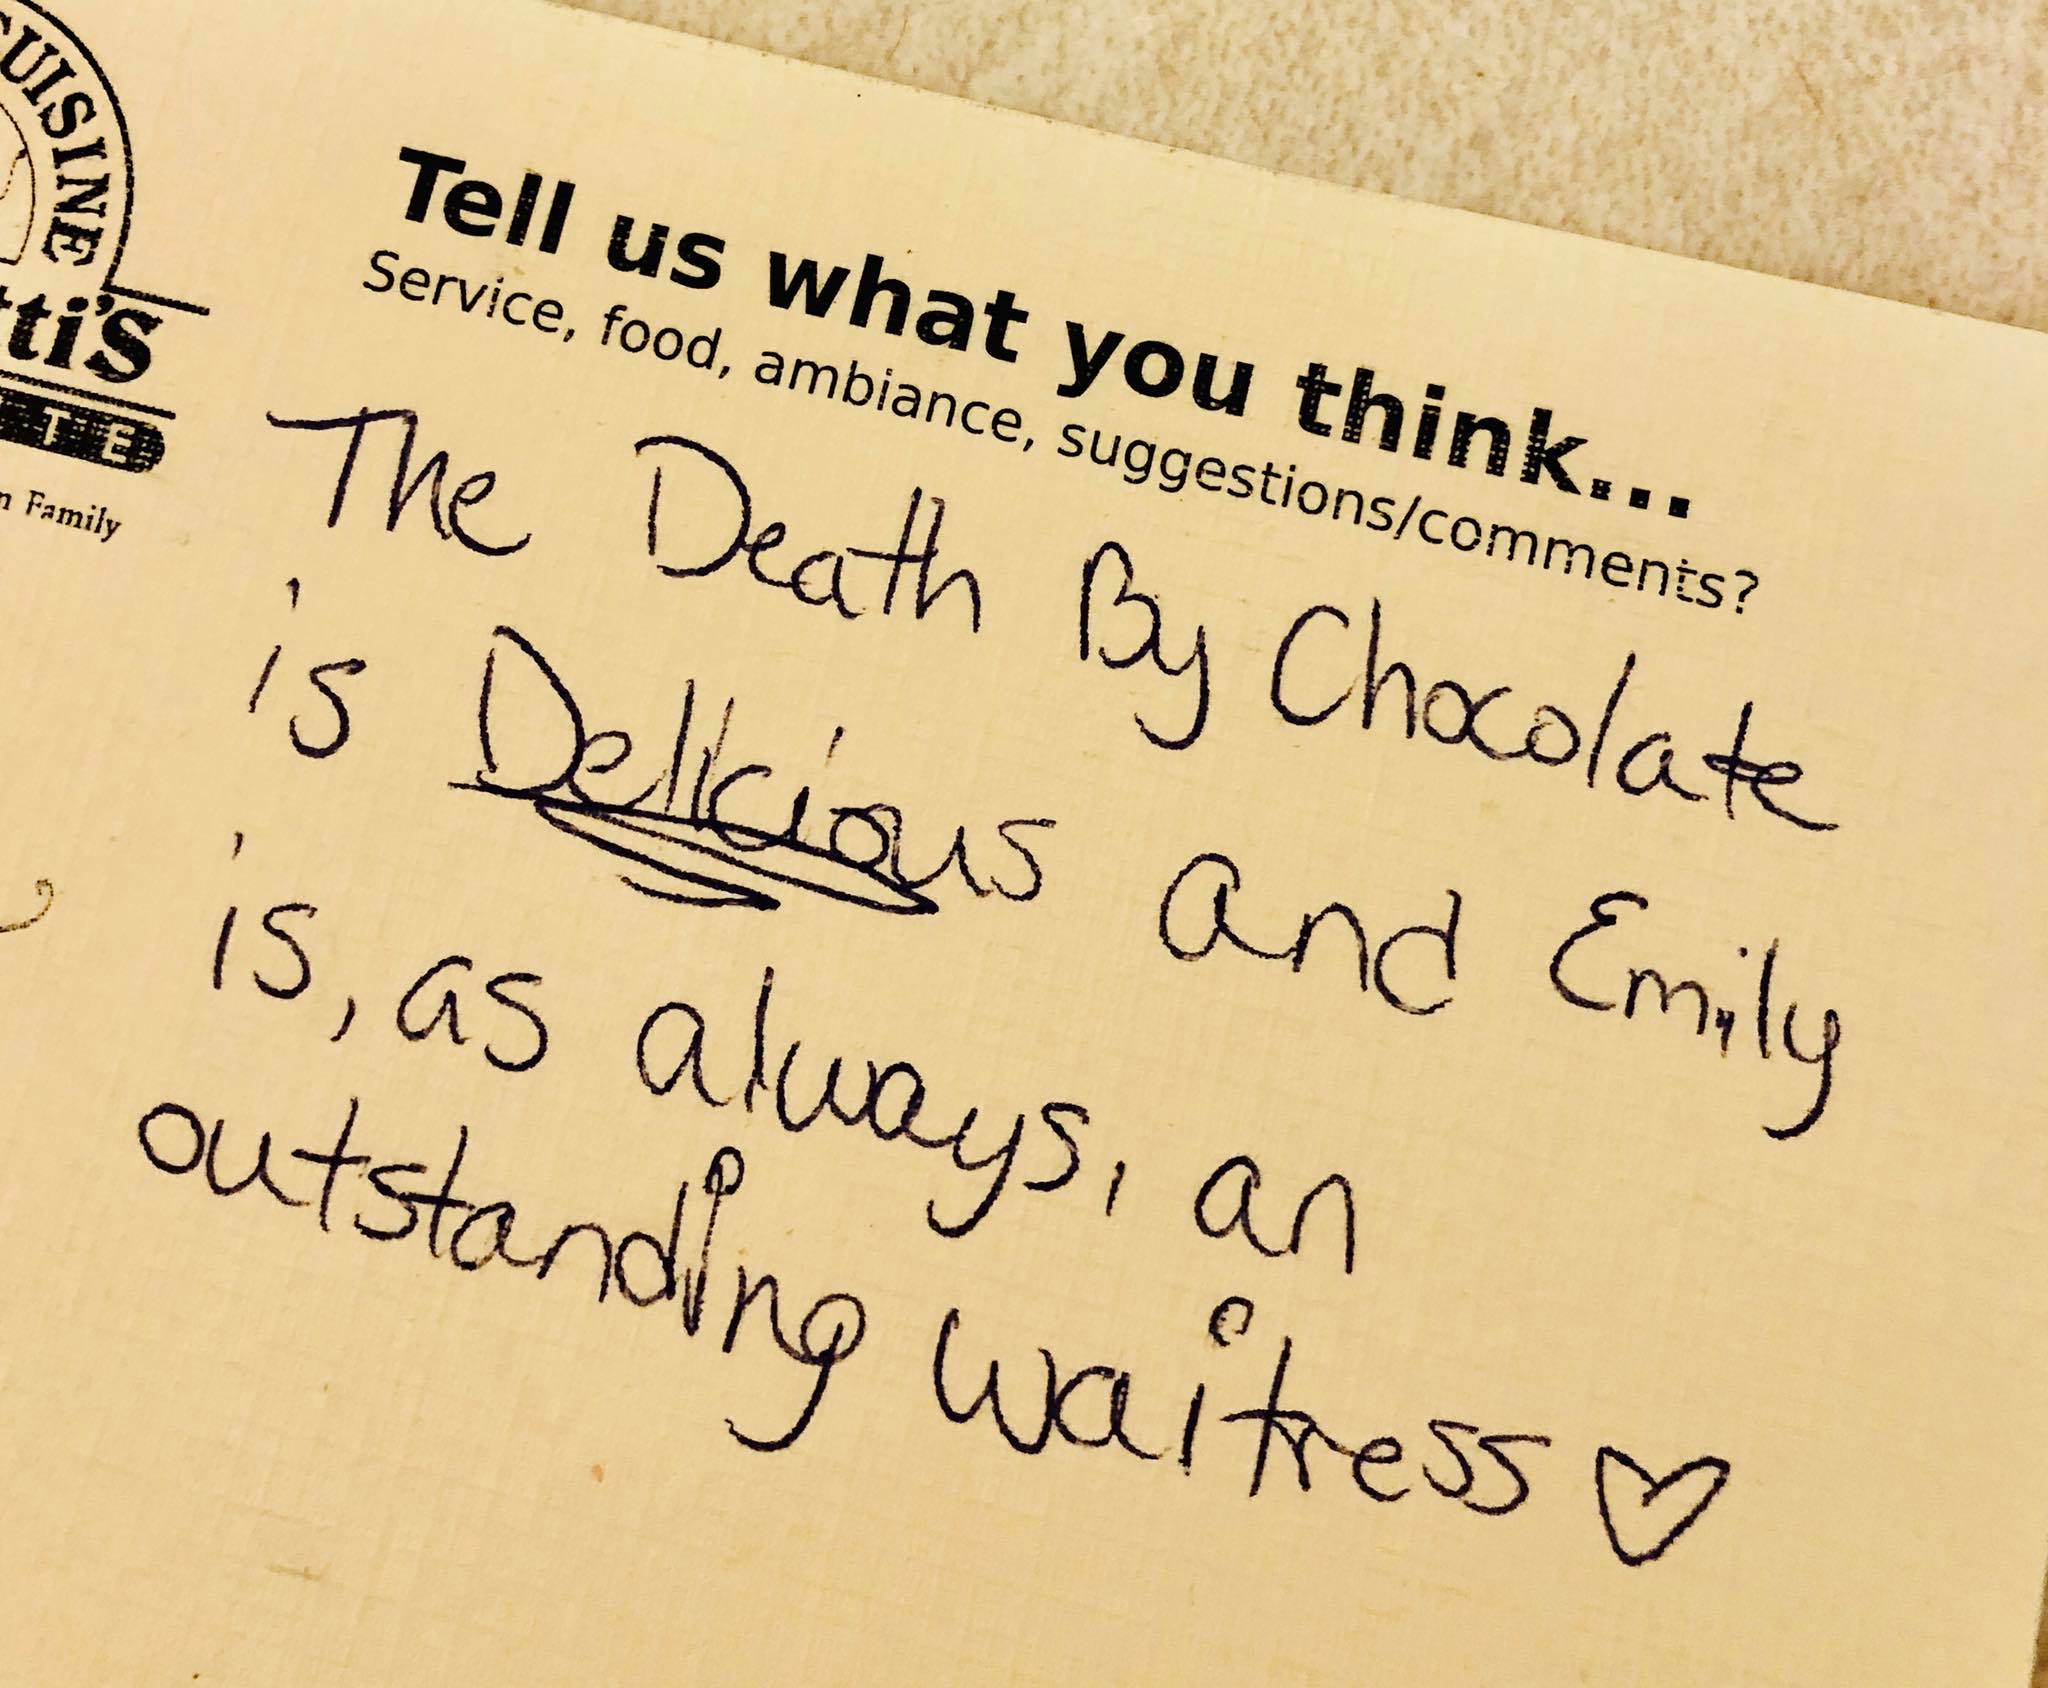 CUISINE
tti's
TE
n Family
Tell us what you think...
Service, food, ambiance, suggestions/comments?
The Death By Chocolate
is Delicious and Emily
is, as always, an
outstanding waitress ♡